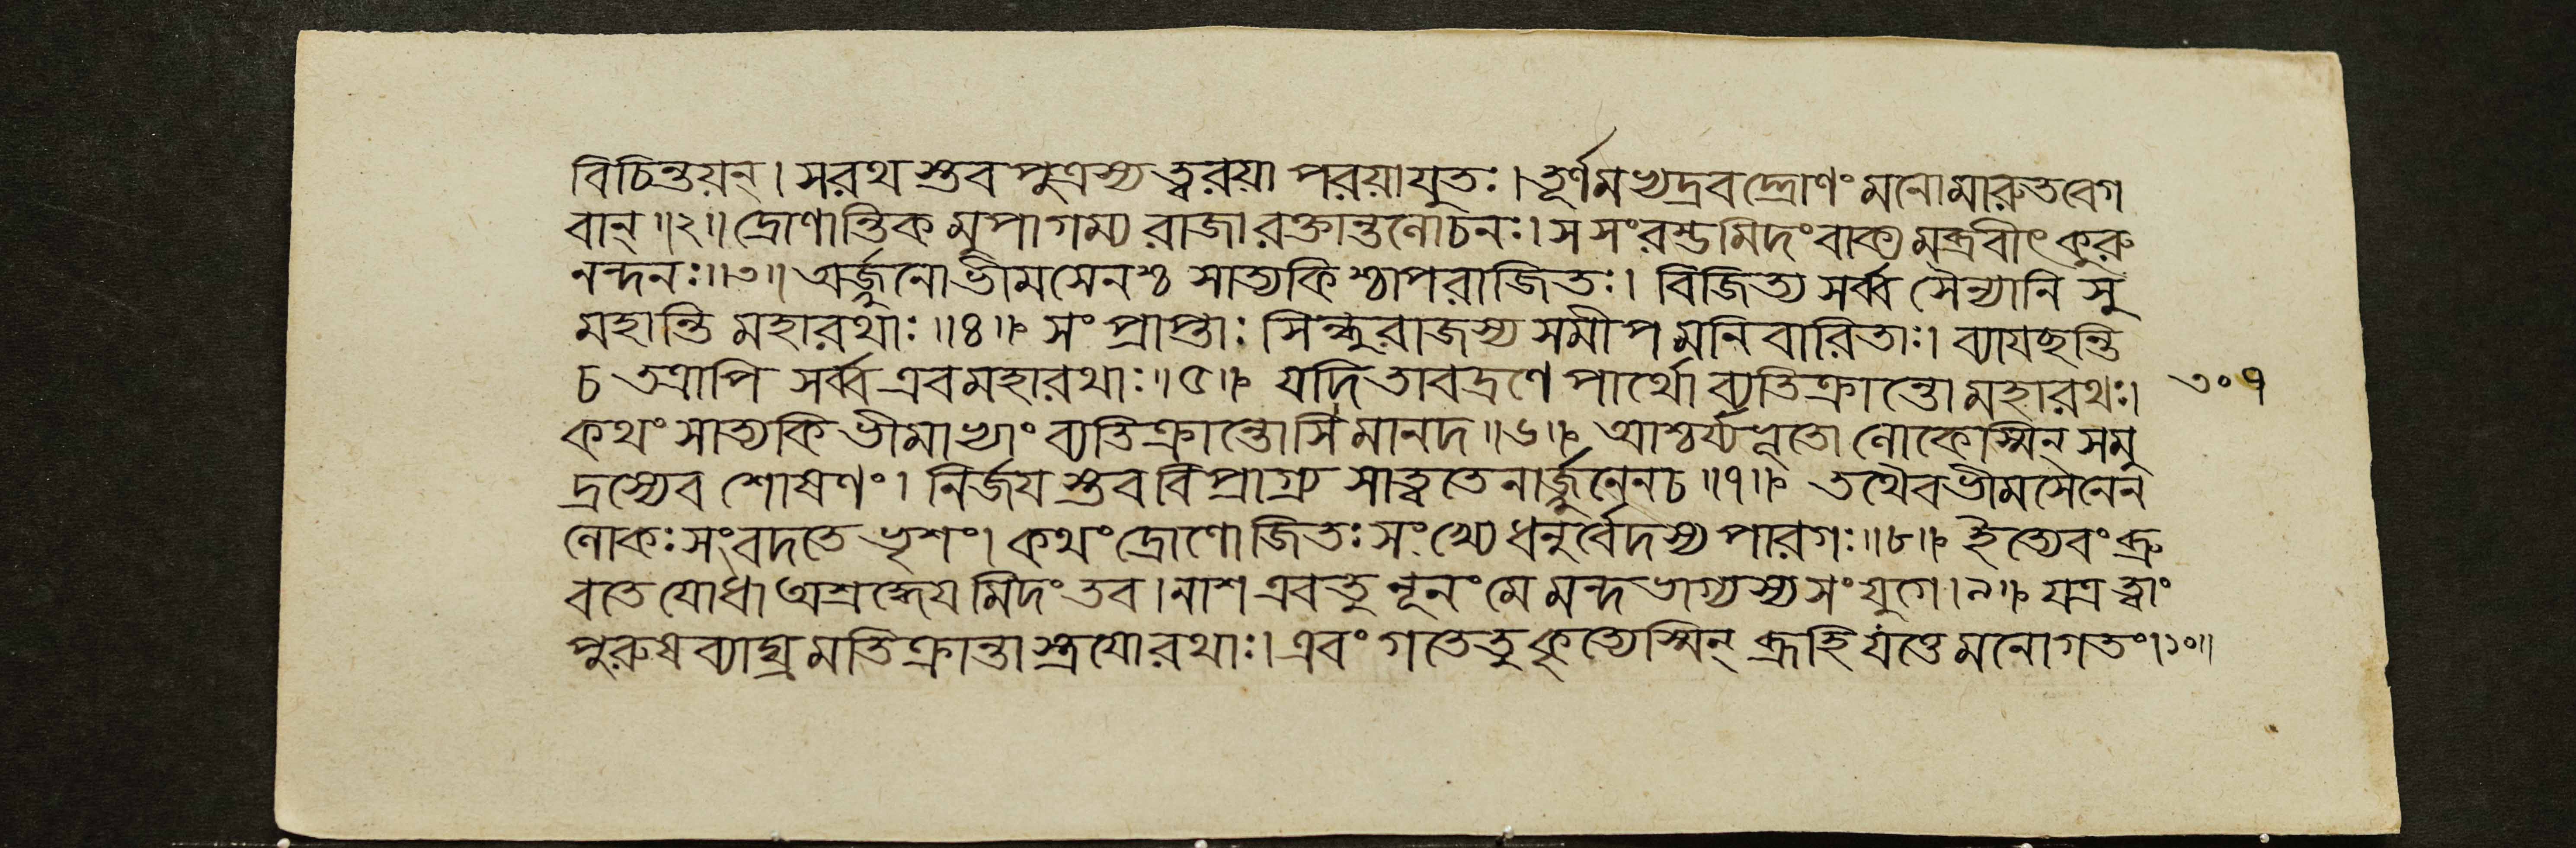 বিচিন্তয়ন্। সরথ স্তব পুত্রস্য ত্বরয়া পরয়াযুতঃ। তূর্ণমভ্যদ্রবদ্দ্রোণং মনোমারুতবেগ
বান্॥২॥ দ্রোণান্তিক মুপাগম্য রাজা রক্তান্তলোচনঃ। স সংরম্ভমিদং বাক্য মব্রবীৎ কুরু
নন্দনঃ॥৩॥ অর্জ্জুনো ভীমসেনশ্চ সাত্যকি শ্চাপরাজিতঃ। বিজিত্য সর্ব্ব সৈন্যানি সু
মহান্তি মহারথাঃ॥৪॥ সংপ্রাপ্তাঃ সিন্ধুরাজস্য সমীপ মনিবারিতাঃ। ব্যাযছন্তি
চ তত্রাপি সর্ব্ব এব মহারথাঃ॥৫॥ যদি তাবদ্রণে পার্থো ব্যতিক্রান্তো মহারথঃ। ৩০৭
কথং সাত্যকি ভীমাভ্যাং ব্যতিক্রান্তোসি মানদ॥৬॥ আশ্চর্য্যভূতো লোকেস্মিন্ সমু
দ্রস্যেব শোষণং। নির্জয স্তব বিপ্রাগ্র্য সাত্বতেনার্জ্জুনেনচ॥৭॥ তথৈব ভীমসেনেন
লোকঃ সংবদতে ভৃশং। কথং দ্রোণো জিতঃ সংখ্যে ধনুর্বেদস্য পারগঃ॥৮॥ ইত্যেবং ব্রু
বতে যোধা অশ্রদ্ধেয মিদং তব। নাশ এব তু নূনং মে মন্দভাগ্যস্য সংযুগে।৯॥ যত্র ত্বাং
পুরুষ ব্যাঘ্র মতিক্রান্তা স্ত্রযো রথাঃ। এবং গতেতু কৃত্যেস্মিন্ ব্রূহি যত্তে মনোগতং।১০॥